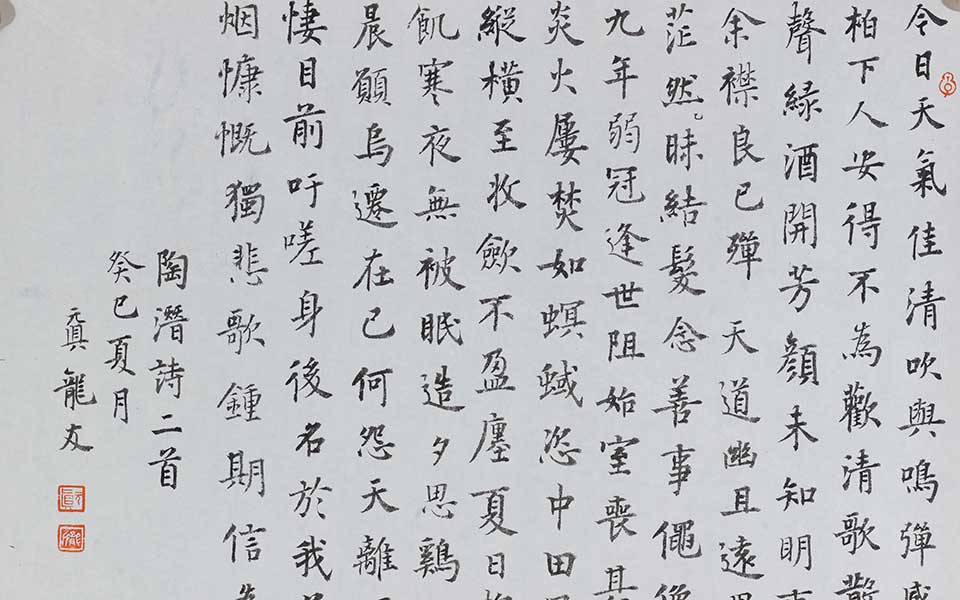 今日天氣佳清吹與鳴彈感
柏下人安得不為歡清歌散
聲緑酒開芳顏未知明事
余襟良已殫 天道幽且遠
茫然。昧結髮念善事僶俛
九年弱冠逢世阻始室喪其
炎火屢焚如螟蜮恣中田
縱橫至收斂不盈廛夏日
飢寒夜無被眠造夕思鷄
晨願烏遷在己何怨天離
悽目前吁嗟身後名於我
烟慷慨獨悲歌鍾期信
陶潛詩二首
癸巳夏月
龍友